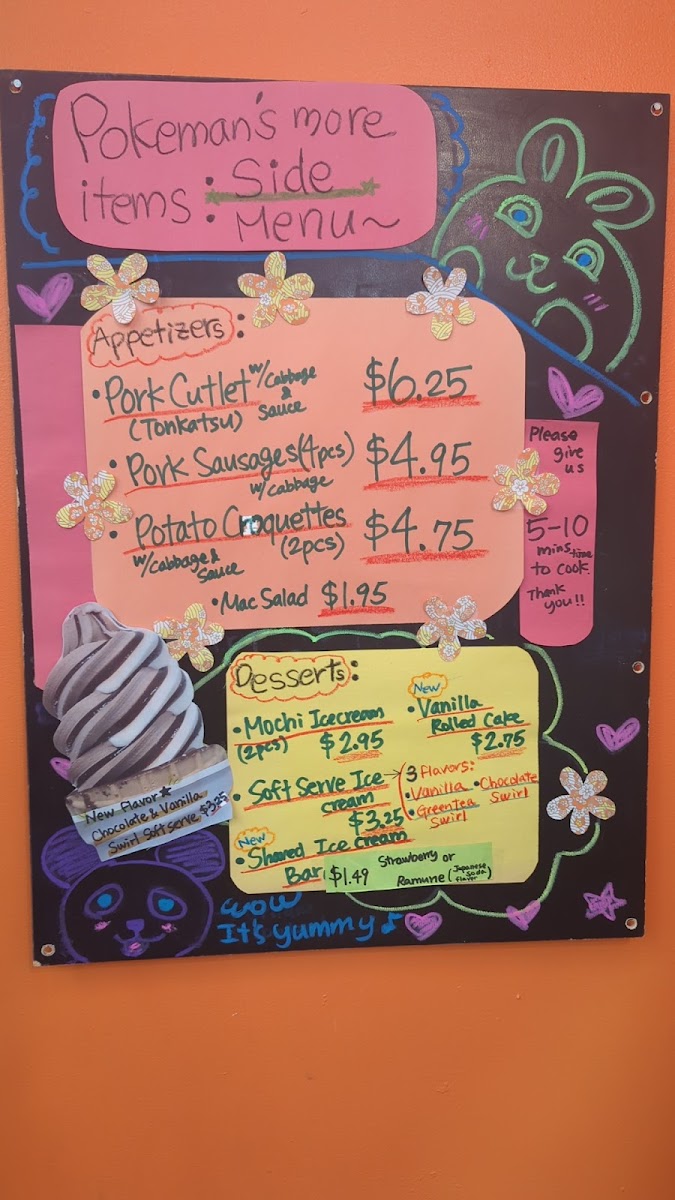 Pokeman's more
items: Side
Menu~
Appetizers:
• Pork Cutlet w/Cabbage & Sauce $6.25
(Tonkatsu)
• Pork Sausages (4pcs) $4.95
w/cabbage
• Potato Croquettes $4.75
w/Cabbage & Sauce (2pcs)
• Mac Salad $1.95
Please
give
us
5-10
mins time
to cook.
Thank
you!!
Desserts:
• Mochi Icecream
(2pcs) $2.95
• Soft Serve Ice
cream
$3.25
New
• Shaved Ice cream
Bar $1.49 Strawberry or
Ramune (Japanese Soda flavor)
New
• Vanilla
Rolled Cake
$2.75
3 flavors:
• Vanilla • Chocolate Swirl
• Green Tea Swirl
New Flavor★
Chocolate & Vanilla
Swirl Soft serve $3.25
WOW
It's yummy♪